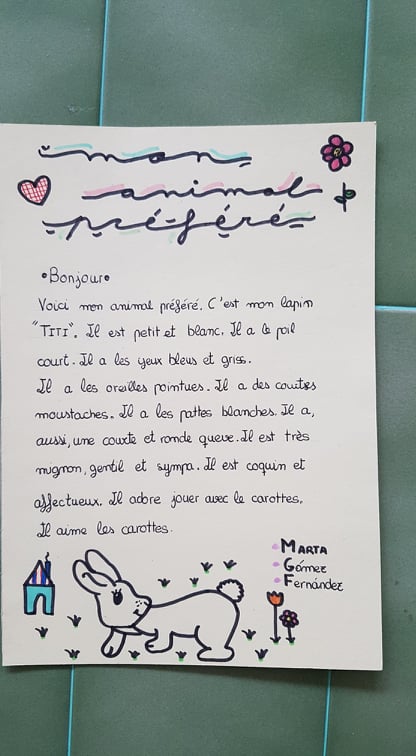 mon
animal
préféré
•Bonjour•
Voici mon animal préféré. C'est mon lapin
"TITI". Il est petit et blanc. Il a le poil
court. Il a les yeux bleus et griss.
Il a les oreilles pointues. Il a des courtes
moustaches. Il a les pattes blanches. Il a,
aussi, une courte et ronde queue. Il est très
mignon, gentil et sympa. Il est coquin et
affectueux. Il adore jouer avec le carottes.
Il aime les carottes.
MARTA
Gómez
Fernández